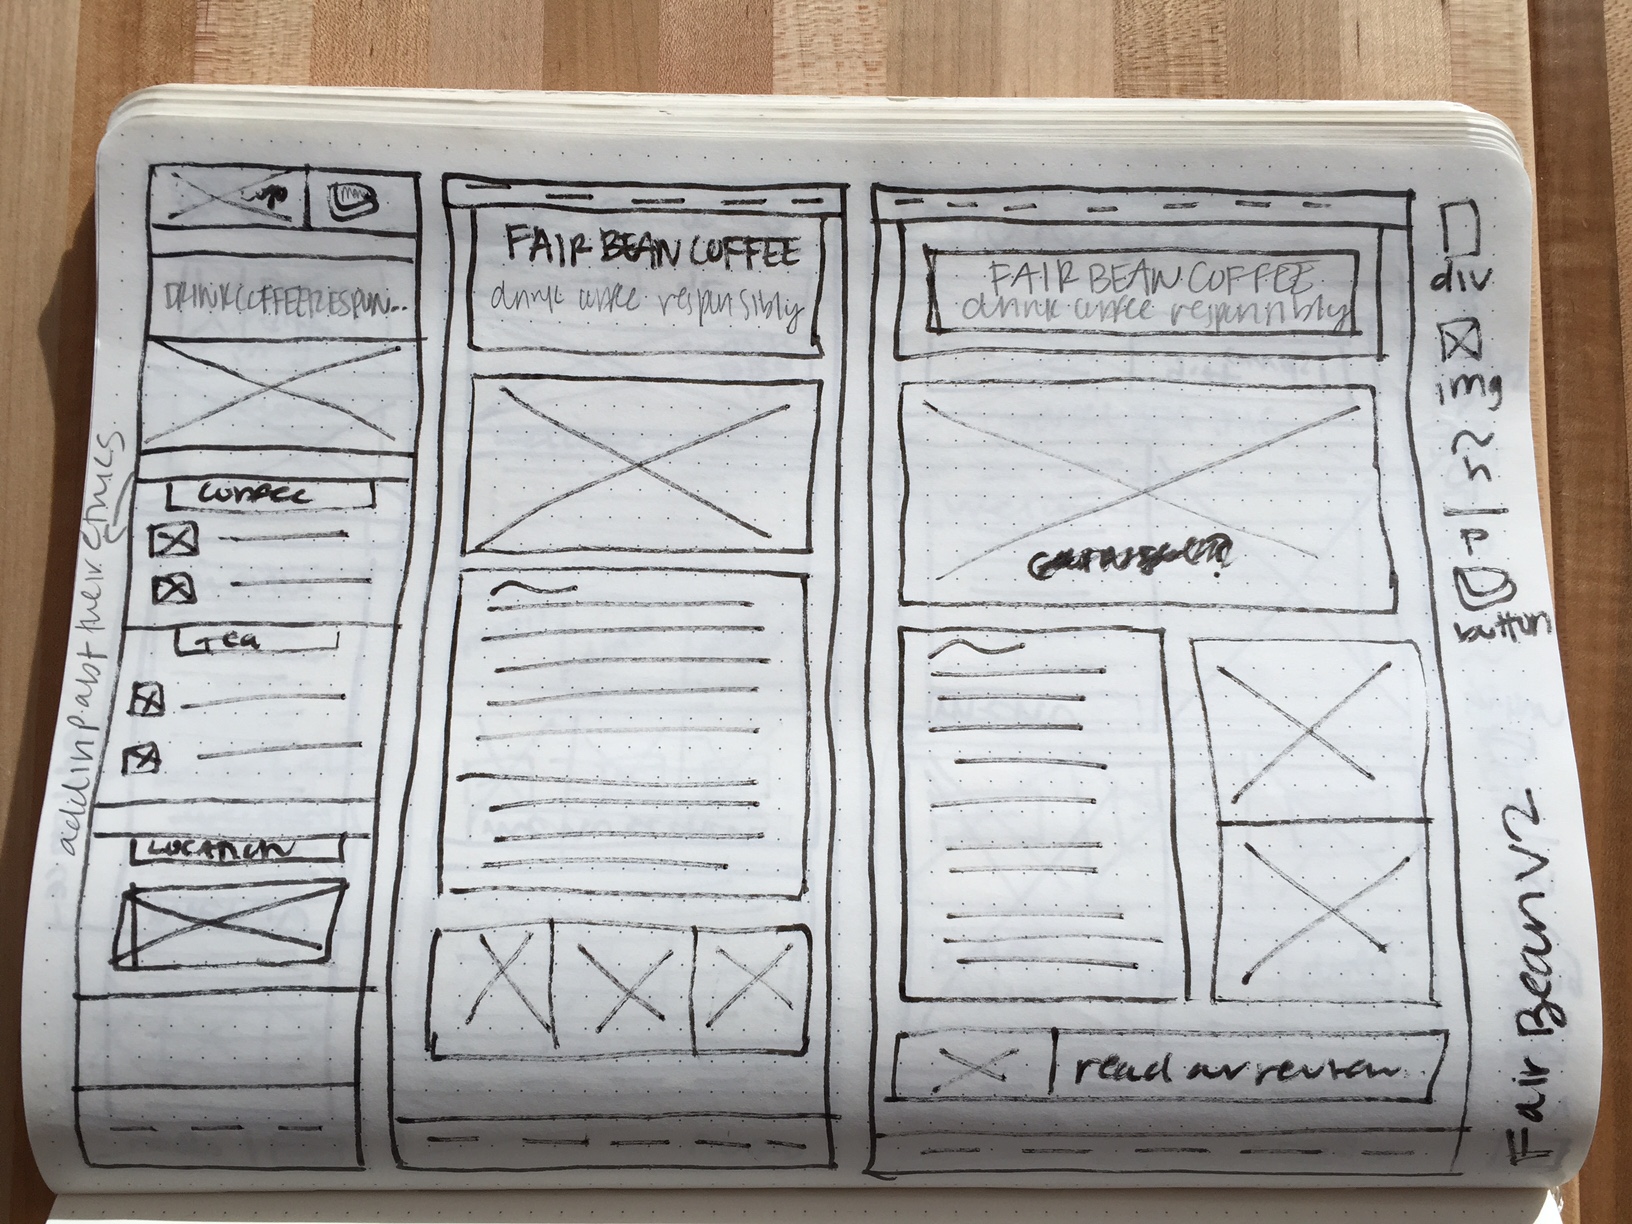 add in p abt their ethics
DRINK COFFEE RESPON...
coffee
Tea
LOCATION
FAIR BEAN COFFEE
drink coffee responsibly
FAIR BEAN COFFEE
drink coffee responsibly
carousel?
read our review...
div
img
h
p
button
Fair Bean V2